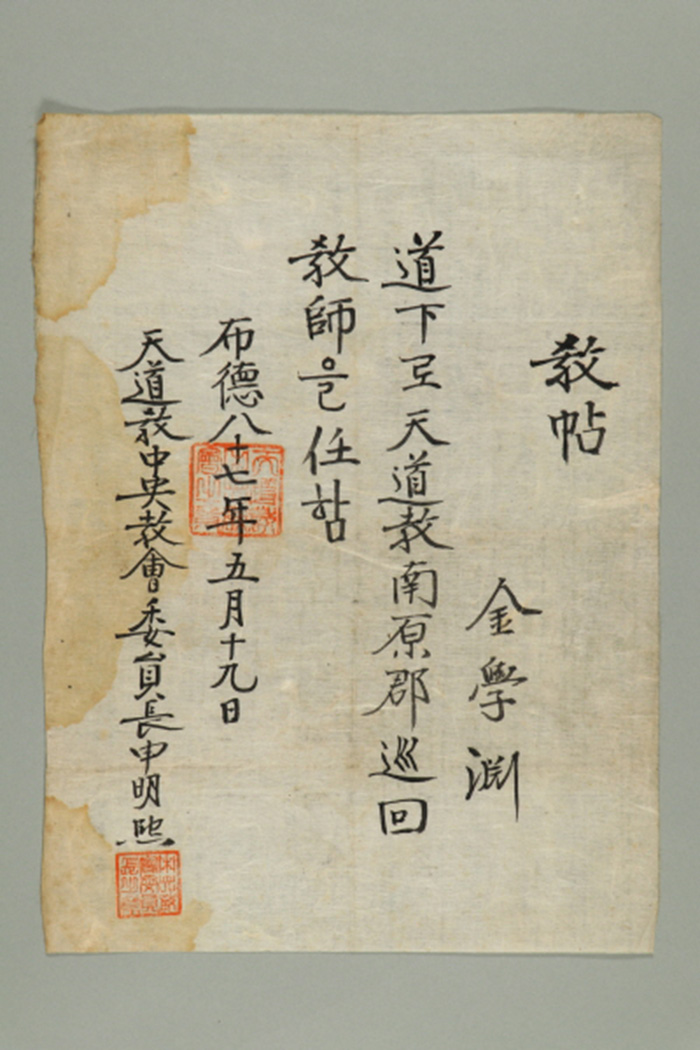 敎帖
金學淵
道下로天道敎南原郡巡回
敎師을任함
布德八十七年五月十九日
天道敎中央敎會委員長申明熙